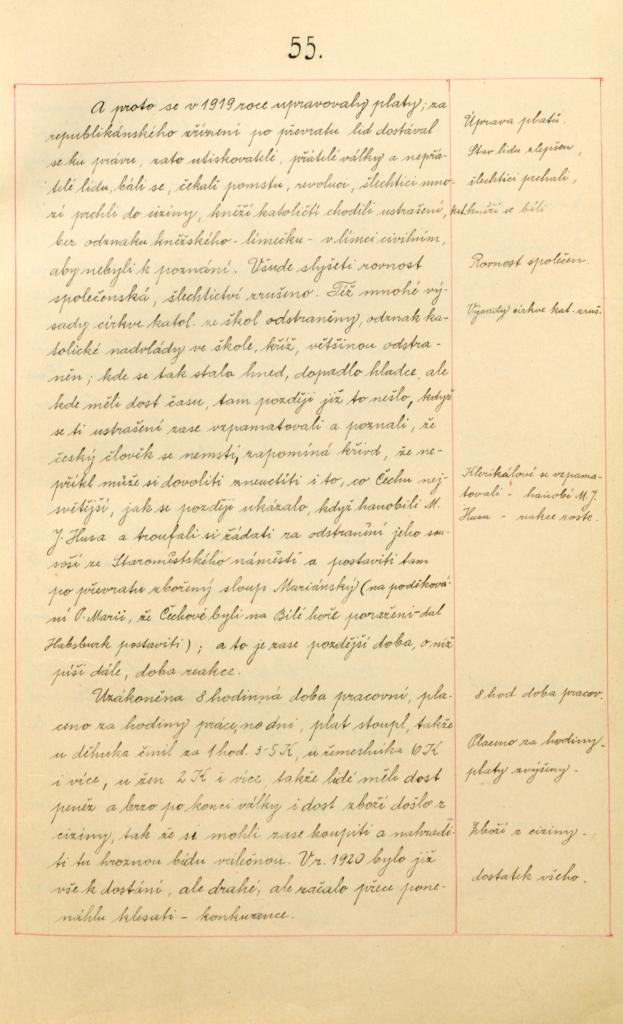 55.
A proto se v 1919 roce upravovaly platy; za
republikánského zřízení po převratu lid dostával
se ku právu, zato utiskovatelé, přátelé války a nepřá-
telé lidu, báli se, čekali pomstu, revoluci, šlechtici mno-
zí prchli do ciziny, kněží katoličtí chodili ustrašení,
bez odznaku kněžského - límečku - v límci civilním,
aby nebyli k poznání. Všude slyšeti rovnost
společenská, šlechtictví zrušeno. Též mnohé vý-
sady církve katol. ze škol odstraněny, odznak ka-
tolické nadvlády ve škole, kříž, většinou odstra-
něn; kde se tak stalo hned, dopadlo hladce, ale
kde měli dost času, tam později již to nešlo, když
se ti ustrašení zase vzpamatovali a poznali, že
český člověk se nemstí, zapomíná křivd, že ne-
přítel může si dovoliti zneuctíti i to, co Čechu nej-
světější, jak se později ukázalo, když hanobili M.
J. Husa a troufali si žádati za odstranění jeho sou-
soší ze Staroměstského náměstí a postaviti tam
po převratu zbořený sloup Mariánský (na poděková-
ní P. Marii, že Čechové byli na Bílé hoře poraženi - dal
Habsburk postaviti); a to je zase pozdější doba, o níž
píši dále, doba reakce.
Uzákoněna 8 hodinná doba pracovní, pla-
ceno za hodiny práce, no dni, plat stoupl, takže
u dělníka činil za 1 hod. 3-5 K, u řemeslníka 6 K
i více, u žen 2 K i více, takže lidé měli dost
peněz a brzo po konci války i dost zboží došlo z
ciziny, tak že se mohli zase koupiti a nahradi-
ti tu hroznou bídu válečnou. V r. 1920 bylo již
vše k dostání, ale drahé, ale začalo přece pone-
náhlu klesati - konkurence.
Úprava platů.
Stav lidu zlepšen,
šlechtici prchali,
kat. kněží se báli
Rovnost společen.
Výsady církve kat. zruš.
Klerikálové se vzpama-
tovali - hanobí M. J.
Husa - reakce roste.
8 hod. doba pracov.
Placeno za hodiny -
platy zvýšeny -
Zboží z ciziny -
dostatek všeho.